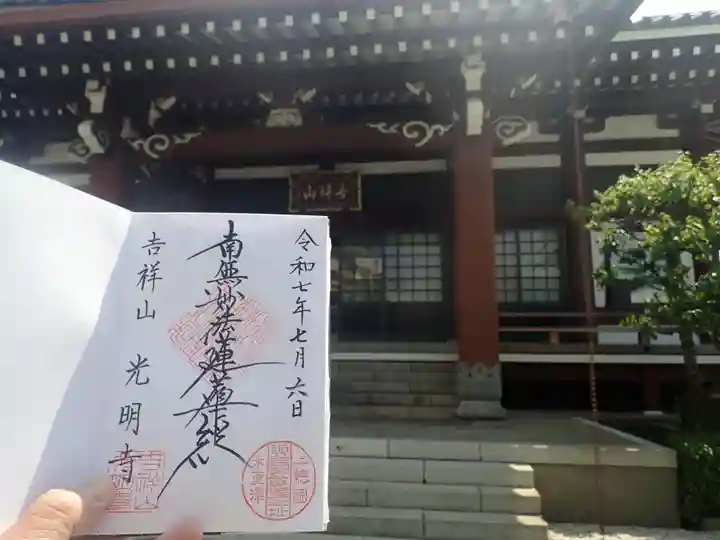 令和七年七月六日
南無妙法蓮華経
吉祥山 光明寺
吉祥山
木更津